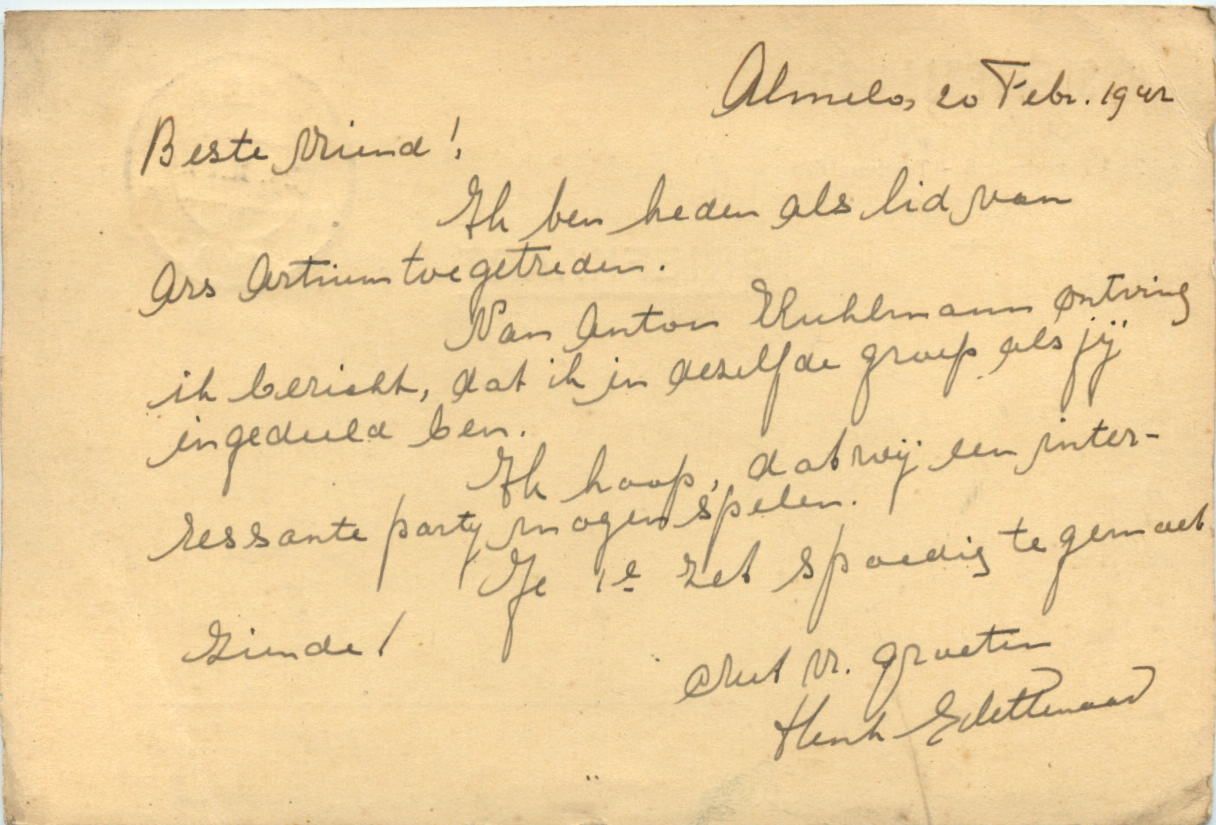 Almelo, 20 Febr. 1942
Beste Vriend!
Ik ben heden als lid van
Ars Artium toegetreden.
Van Anton Kuhlmann ontving
ik bericht, dat ik in dezelfde groep als jij
ingedeeld ben.
Ik hoop, dat wij een inter-
ressante party mogen spelen.
Je 1e zet spoedig tegemoet
ziende!
Met vr. groeten
Henk